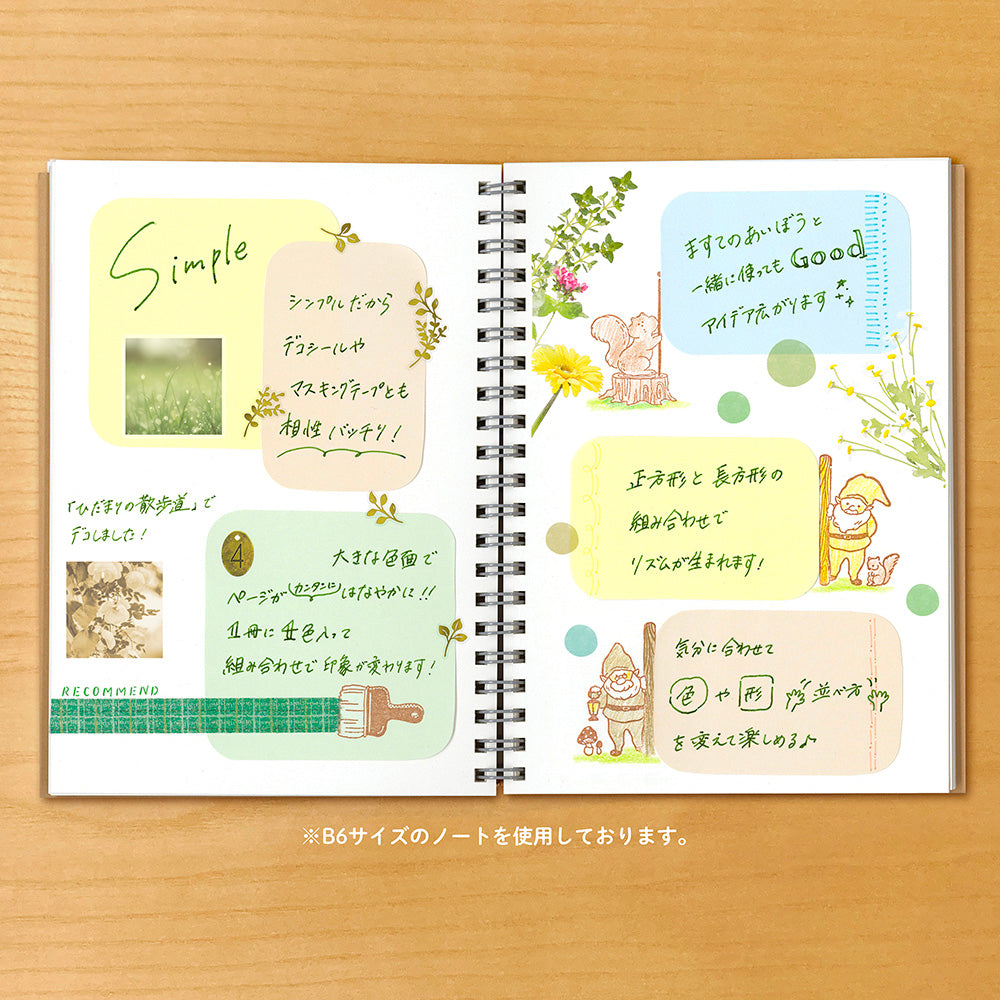 Simple
シンプルだから
デコシールや
マスキングテープとも
相性バッチリ!
「ひだまりの散歩道」で
デコしました!
4
大きな色面で
ページが(カンタンに)はなやかに!!
1冊に4色入って
組み合わせで印象が変わります!
RECOMMEND
ますてのあいぼうと
一緒に使ってもGood
アイデア広がります
正方形と長方形の
組み合わせで
リズムが生まれます!
気分に合わせて
色や形 並べ方
を変えて楽しめる♪
※B6サイズのノートを使用しております。